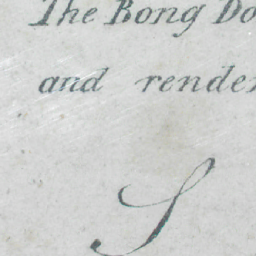 The Rong Do
and render
S